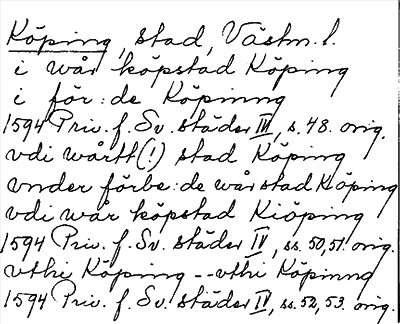 Köping, stad, Västm.l.
i wår köpstad Köping
i för:de Köpinng
1594 Priv. f. Sv. städer III, s. 48. orig.
vdi wårtt(!) stad Köping
vnder förbe:de wår stad Köping
vdi wår köpstad Kiöping
1594 Priv. f. Sv. städer IV, ss. 50,51. orig.
vthi Köping -- vthi Köpinng
1594 Priv. f. Sv. städer IV, ss. 52, 53. orig.